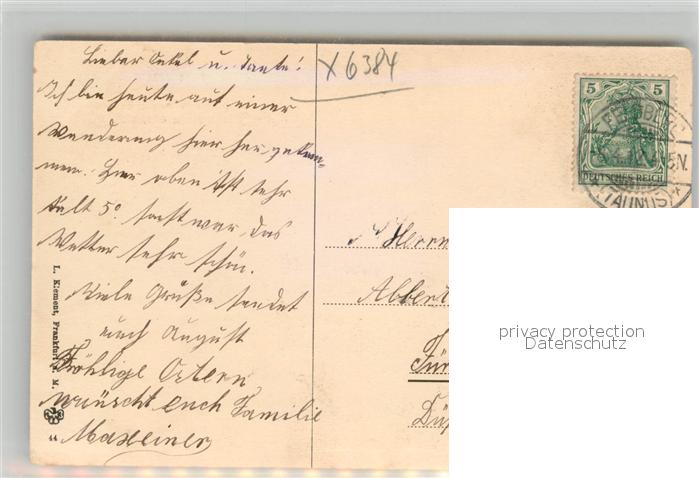 Lieber Onkel u. Tante!
Ich bin heute auf einer
Wanderung hier her gekom-
men. Hier oben ist sehr
kalt 5° sonst war das
Wetter sehr schön.
Viele Grüße sendet
euch August
Fröhlige Ostern
wünscht euch Familie
X6384
5 5
DEUTSCHES REICH
(TAUNUS)
Herrn
L. Klement, Frankfurt a. M.
privacy protection
Datenschutz